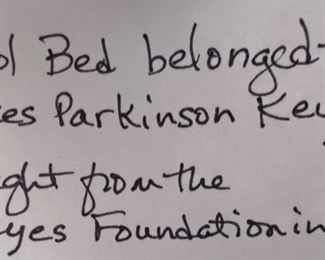 ol Bed belonged
es Parkinson Key
ght from the
yes Foundation in